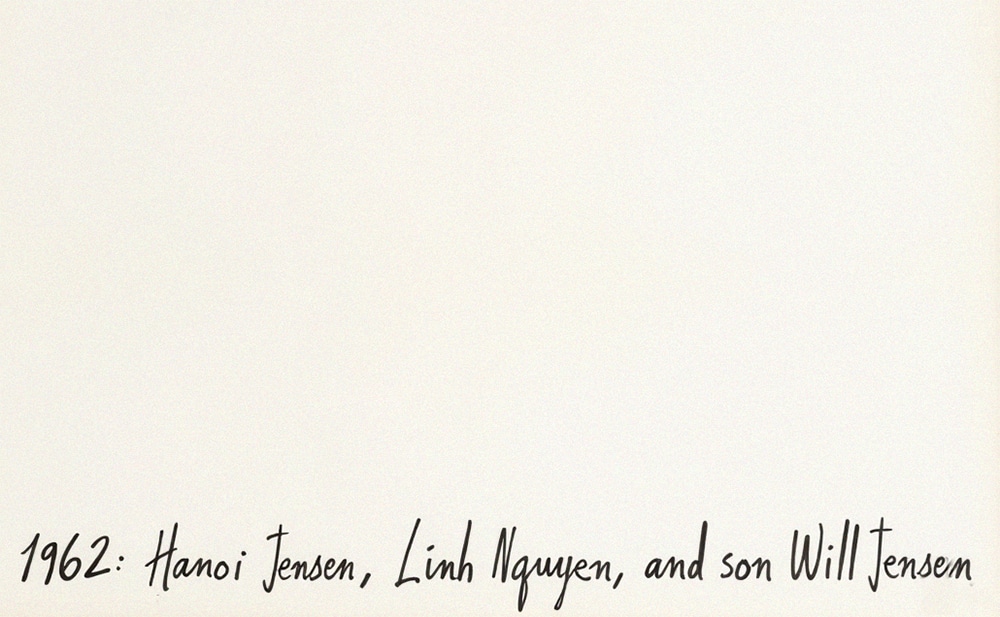 1962: Hanoi Jensen, Linh Nguyen, and son Will Jensen